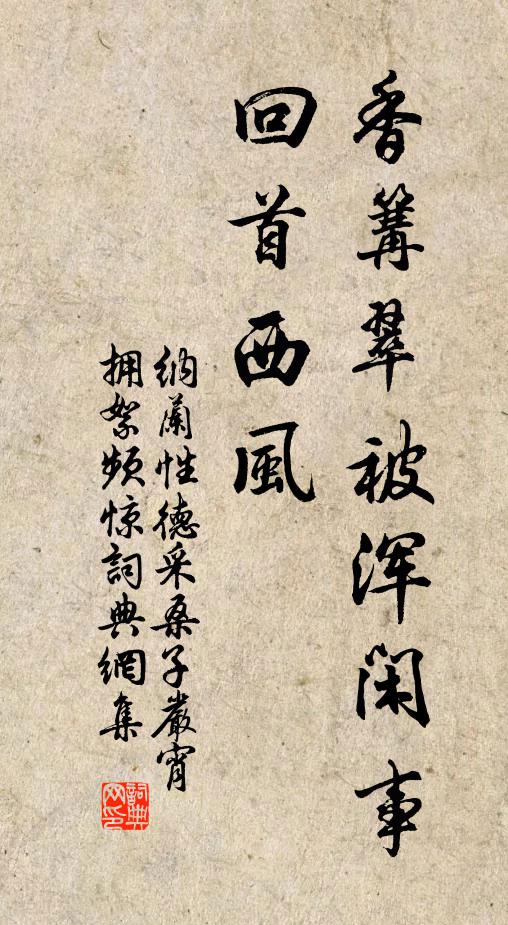 香篝翠被浑閑事
回首西風
納蘭性德采桑子嚴宵
拥絮频惊詞典網集
詞典
网印